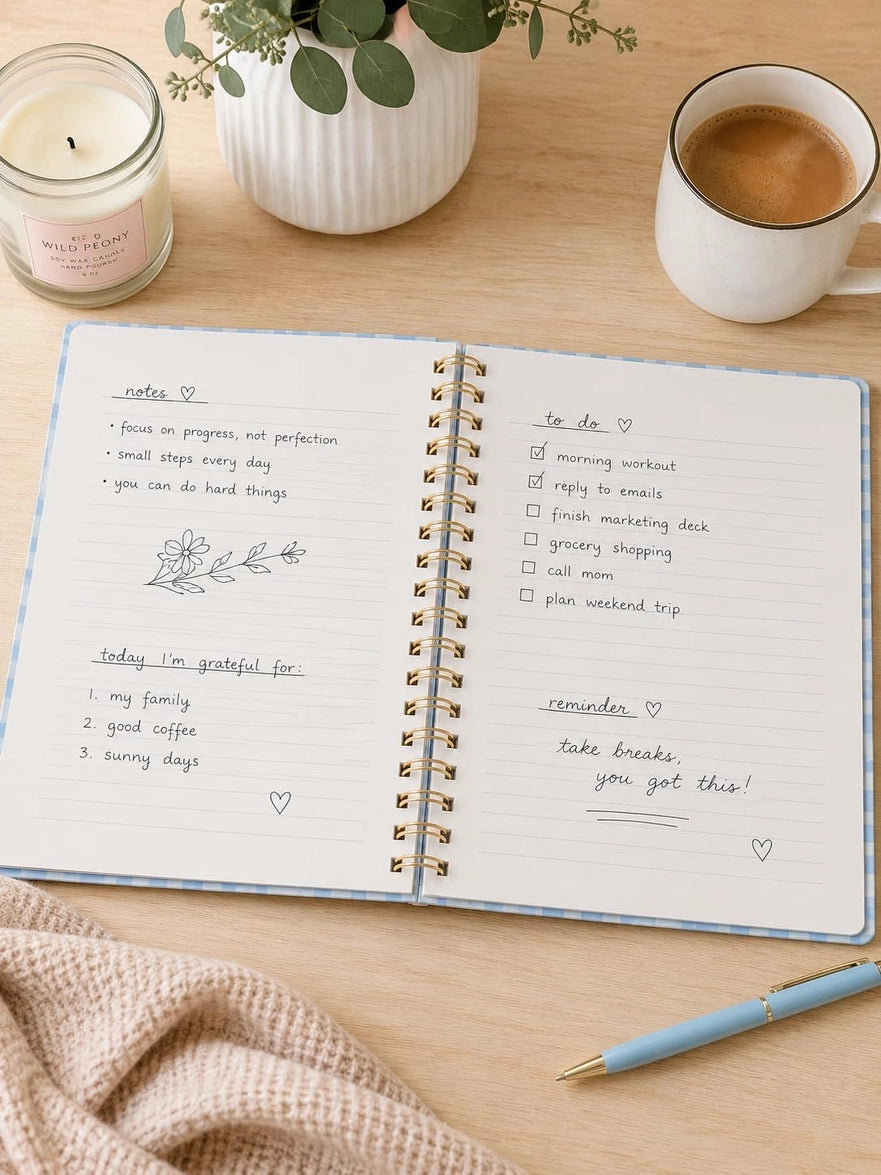 WILD PEONY
SOY WAX CANDLE
HAND POURED
8 OZ
notes
• focus on progress, not perfection
• small steps every day
• you can do hard things
today I'm grateful for:
1. my family
2. good coffee
3. sunny days
to do
☑ morning workout
☑ reply to emails
☐ finish marketing deck
☐ grocery shopping
☐ call mom
☐ plan weekend trip
reminder
take breaks,
you got this!